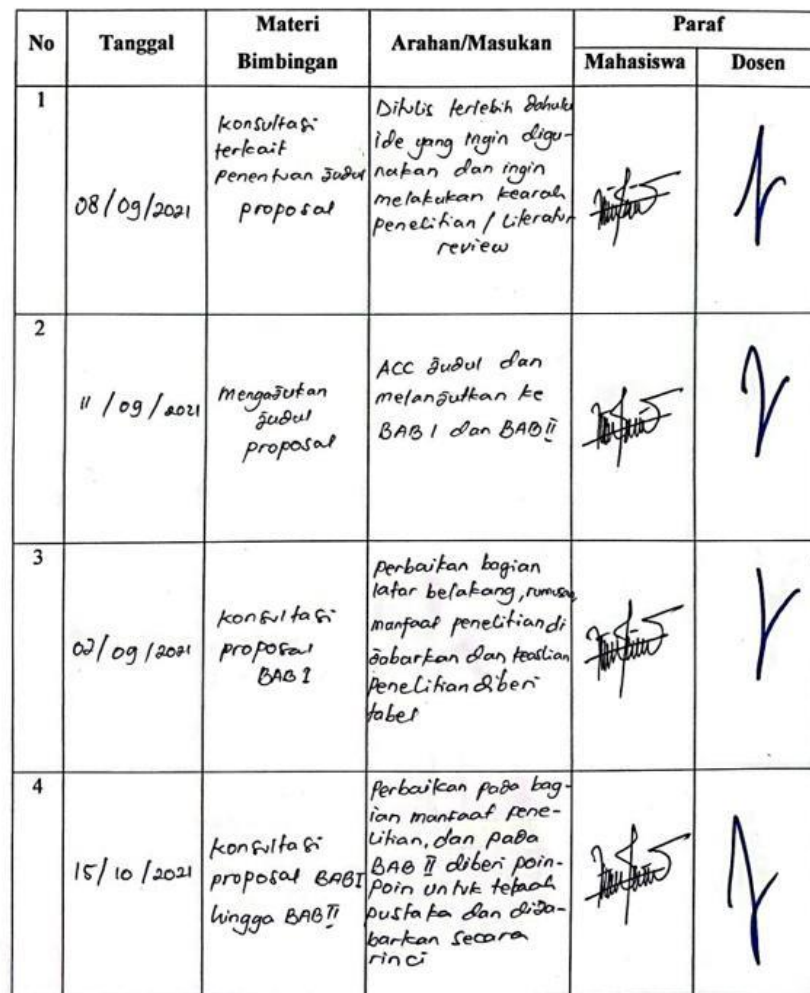 No Tanggal Materi Bimbingan Arahan/Masukan Paraf
Mahasiswa Dosen
1
08/09/2021
konsultasi
terkait
penentuan judul
proposal
Ditulis terlebih dahulu
ide yang ingin digu-
nakan dan ingin
melakukan kearah
penelitian / Literatur
review
2
11/09/2021
mengajukan
judul
proposal
ACC judul dan
melanjutkan ke
BAB I dan BAB II
3
02/09/2021
konsultasi
proposal
BAB I
perbaikan bagian
latar belakang, rumusan,
manfaat penelitian di
jabarkan dan keaslian
penelitian diberi
tabel
4
15/10/2021
konsultasi
proposal BAB I
hingga BAB II
Perbaikan pada bag-
ian manfaat pene-
litian, dan pada
BAB II diberi poin-
poin untuk telaah
pustaka dan dija-
barkan secara
rinci